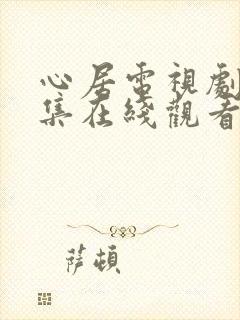 心居電視劇
集在綫觀看
薩頓